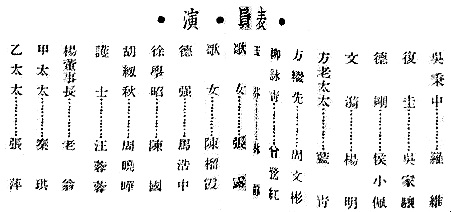 演員表
吳秉中………羅維
復圭………吳家驤
德剛………侯小佩
文漪………楊明
方老太太………藍青
方綴先………周文彬
柳詠青………曾藝紅
歌女………張露
歌女………陳榴霞
德强………馬浩中
徐學昭………陳國
胡紉秋………周曉曄
護士………汪蓉蓉
楊董事長………老翁
甲太太………秦琪
乙太太………張萍